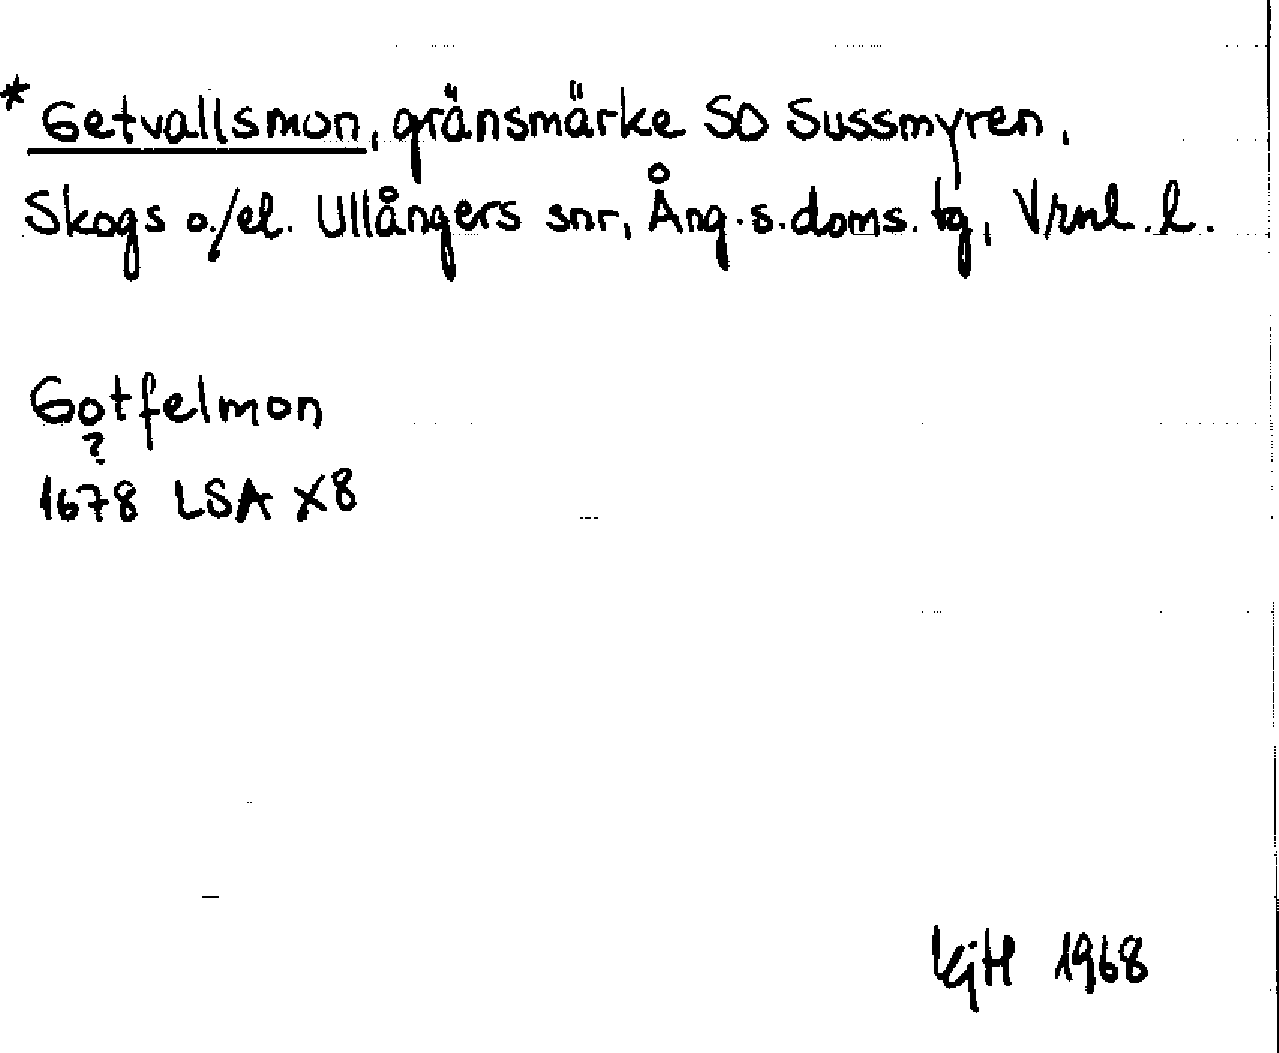 * Getvallsmon, gränsmärke SO Sussmyren,
Skogs o./el. Ullångers snr, Ång.s.doms.tg, Vrnl.l.
Gotfelmon
?
1678 LSA X8
KjH 1968